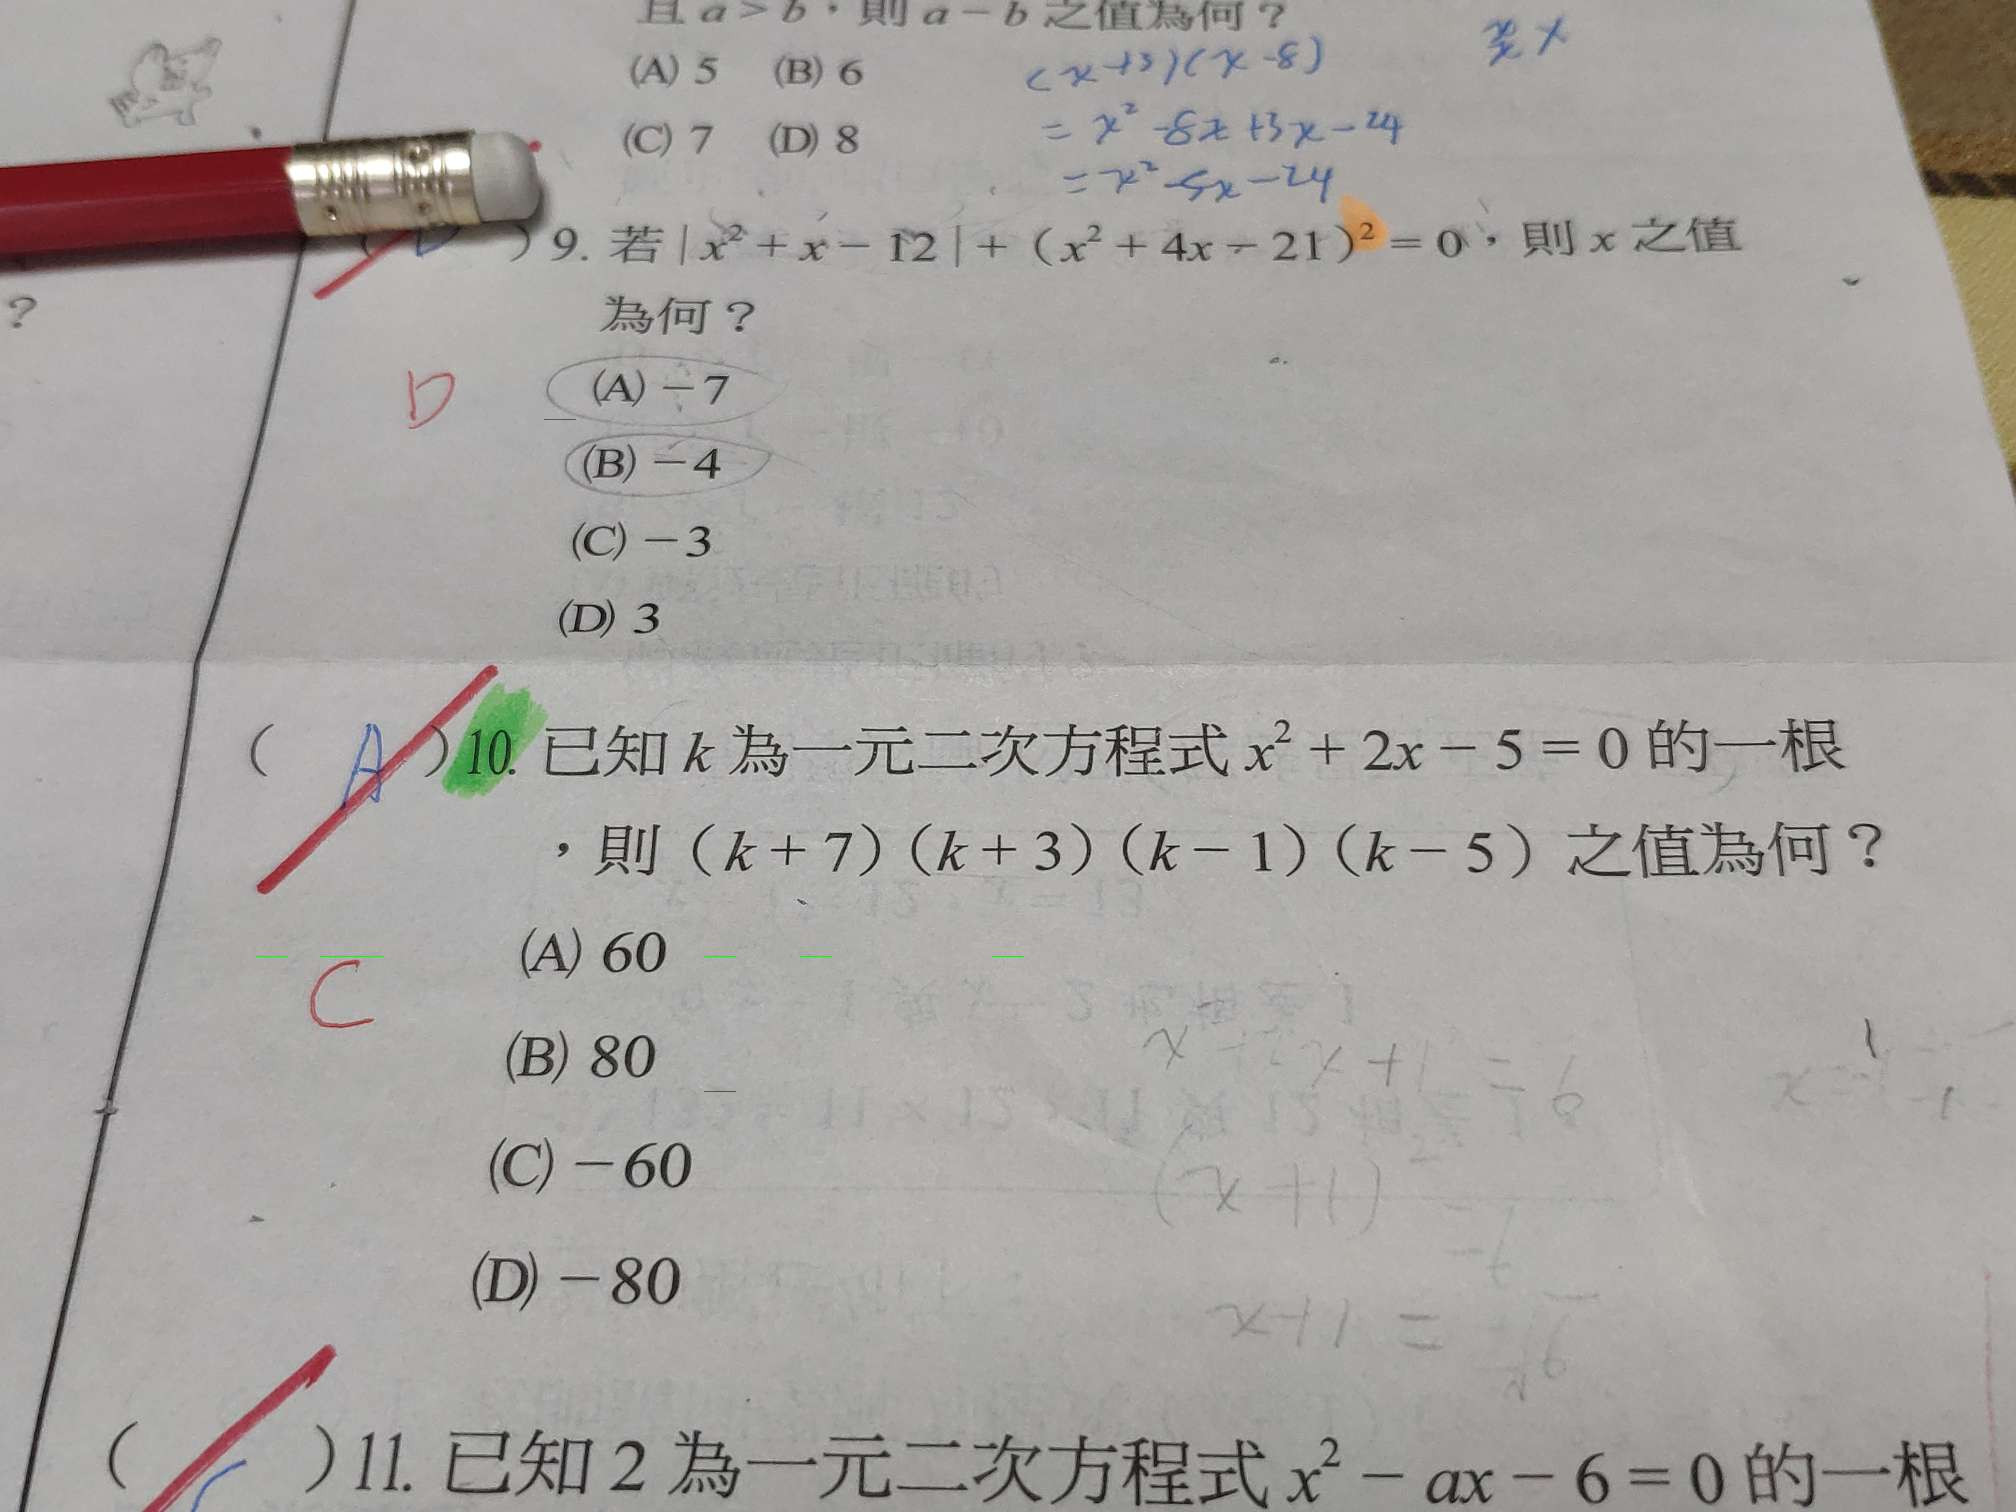 且 a > b，則 a − b 之值為何？
(A) 5 (B) 6
(C) 7 (D) 8
(x+3)(x-8)
= x² -8x +3x -24
= x² -5x -24
) 9. 若 | x² + x − 12 | + ( x² + 4x − 21 )² = 0，則 x 之值
為何？
D
(A) −7
(B) −4
(C) −3
(D) 3
？
( A ) 10. 已知 k 為一元二次方程式 x² + 2x − 5 = 0 的一根
，則 ( k + 7 ) ( k + 3 ) ( k − 1 ) ( k − 5 ) 之值為何？
C
(A) 60
(B) 80
(C) −60
(D) −80
( ) 11. 已知 2 為一元二次方程式 x² − ax − 6 = 0 的一根